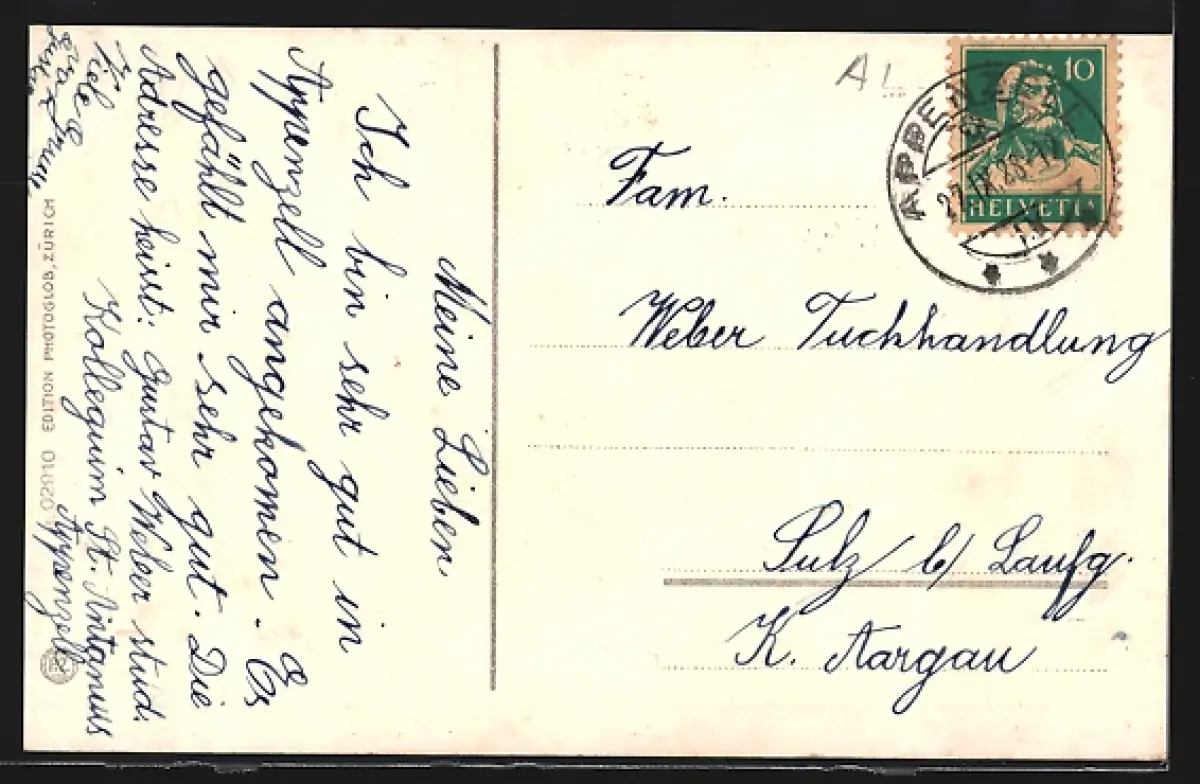 Meine Lieben.
Ich bin sehr gut in
Appenzell angekomen. Es
gefählt mir sehr gut. Die
Adresse heisst: Gustav Weber stud.
Kollegium St. Antanius
Appenzell
Viele
Grüsse
02910 EDITION PHOTOGLOB, ZÜRICH
AL
10
HELVETIA
APPENZELL
27.IX.28
Fam.
Weber Tuchhandlung
Sulz b/ Laufg.
K. Aargau